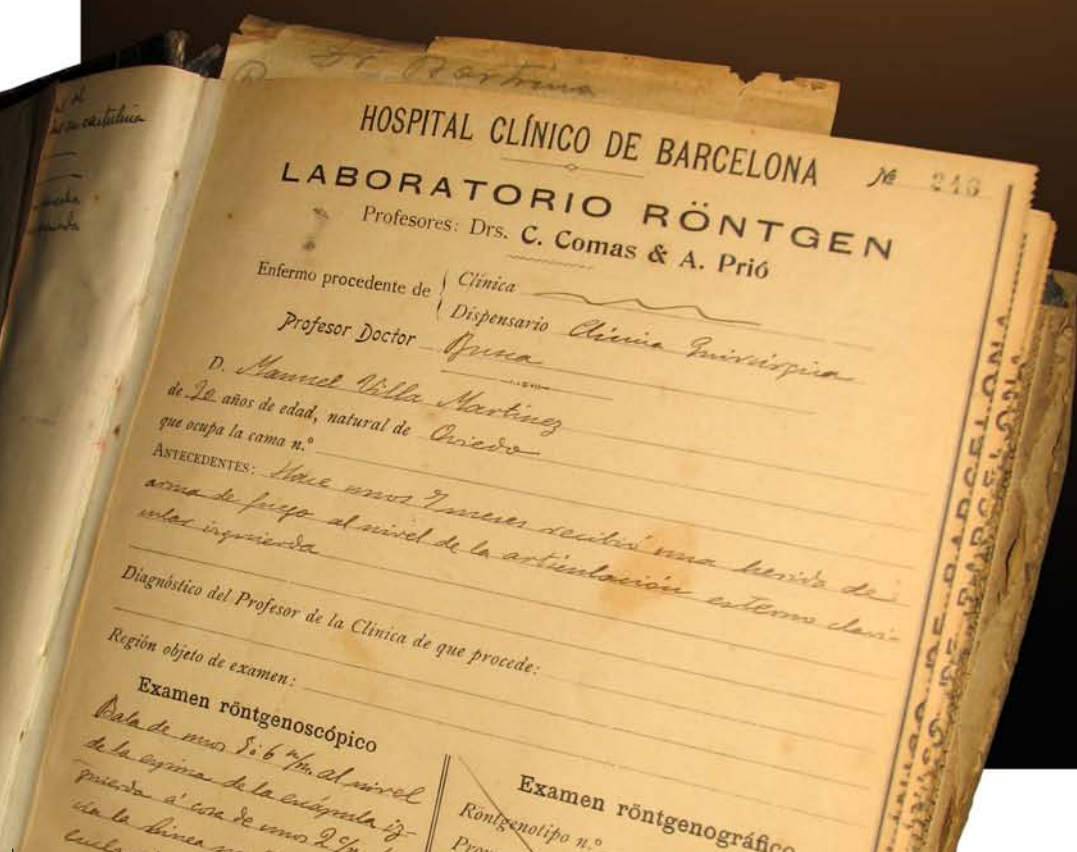 Dr Bartrina
HOSPITAL CLÍNICO DE BARCELONA
№ 246
LABORATORIO RÖNTGEN
Profesores: Drs. C. Comas & A. Prió
Enfermo procedente de
Clínica
Dispensario Clínica Quirúrgica
Profesor Doctor
D. Manuel Villa Martinez
de 20 años de edad, natural de Oviedo
que ocupa la cama n.º
ANTECEDENTES: Hace unos 7 meses recibió una herida de
arma de fuego al nivel de la articulación esterno clavi-
cular izquierda
Diagnóstico del Profesor de la Clínica de que procede:
Región objeto de examen:
Examen röntgenoscópico
Bala de unos 5 ó 6 m/m. al nivel
de la espina de la escápula iz-
quierda á cosa de unos 2 c/m
la linea
Examen röntgenográfico
Röntgenotipo n.º